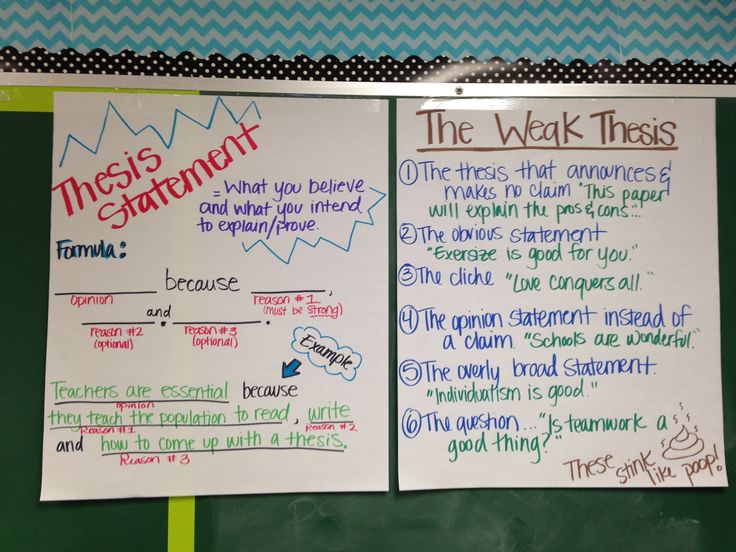 Thesis
Statement
= What you believe
and what you intend
to explain/prove.
Formula:
because
,
opinion
reason #1
(must be strong)
and
.
reason #2
(optional)
reason #3
(optional)
Example
Teachers are essential because
opinion
they teach the population to read, write
Reason #1
Reason #2
and how to come up with a thesis.
Reason #3
The Weak Thesis
① The thesis that announces &
makes no claim "This paper
will explain the pros & cons..."
② The obvious statement
"Exersize is good for you."
③ The cliche "Love conquers all."
④ The opinion statement instead of
a claim. "Schools are wonderful."
⑤ The overly broad statement.
"Individualism is good."
⑥ The question... "Is teamwork a
good thing?"
These
stink
like poop!